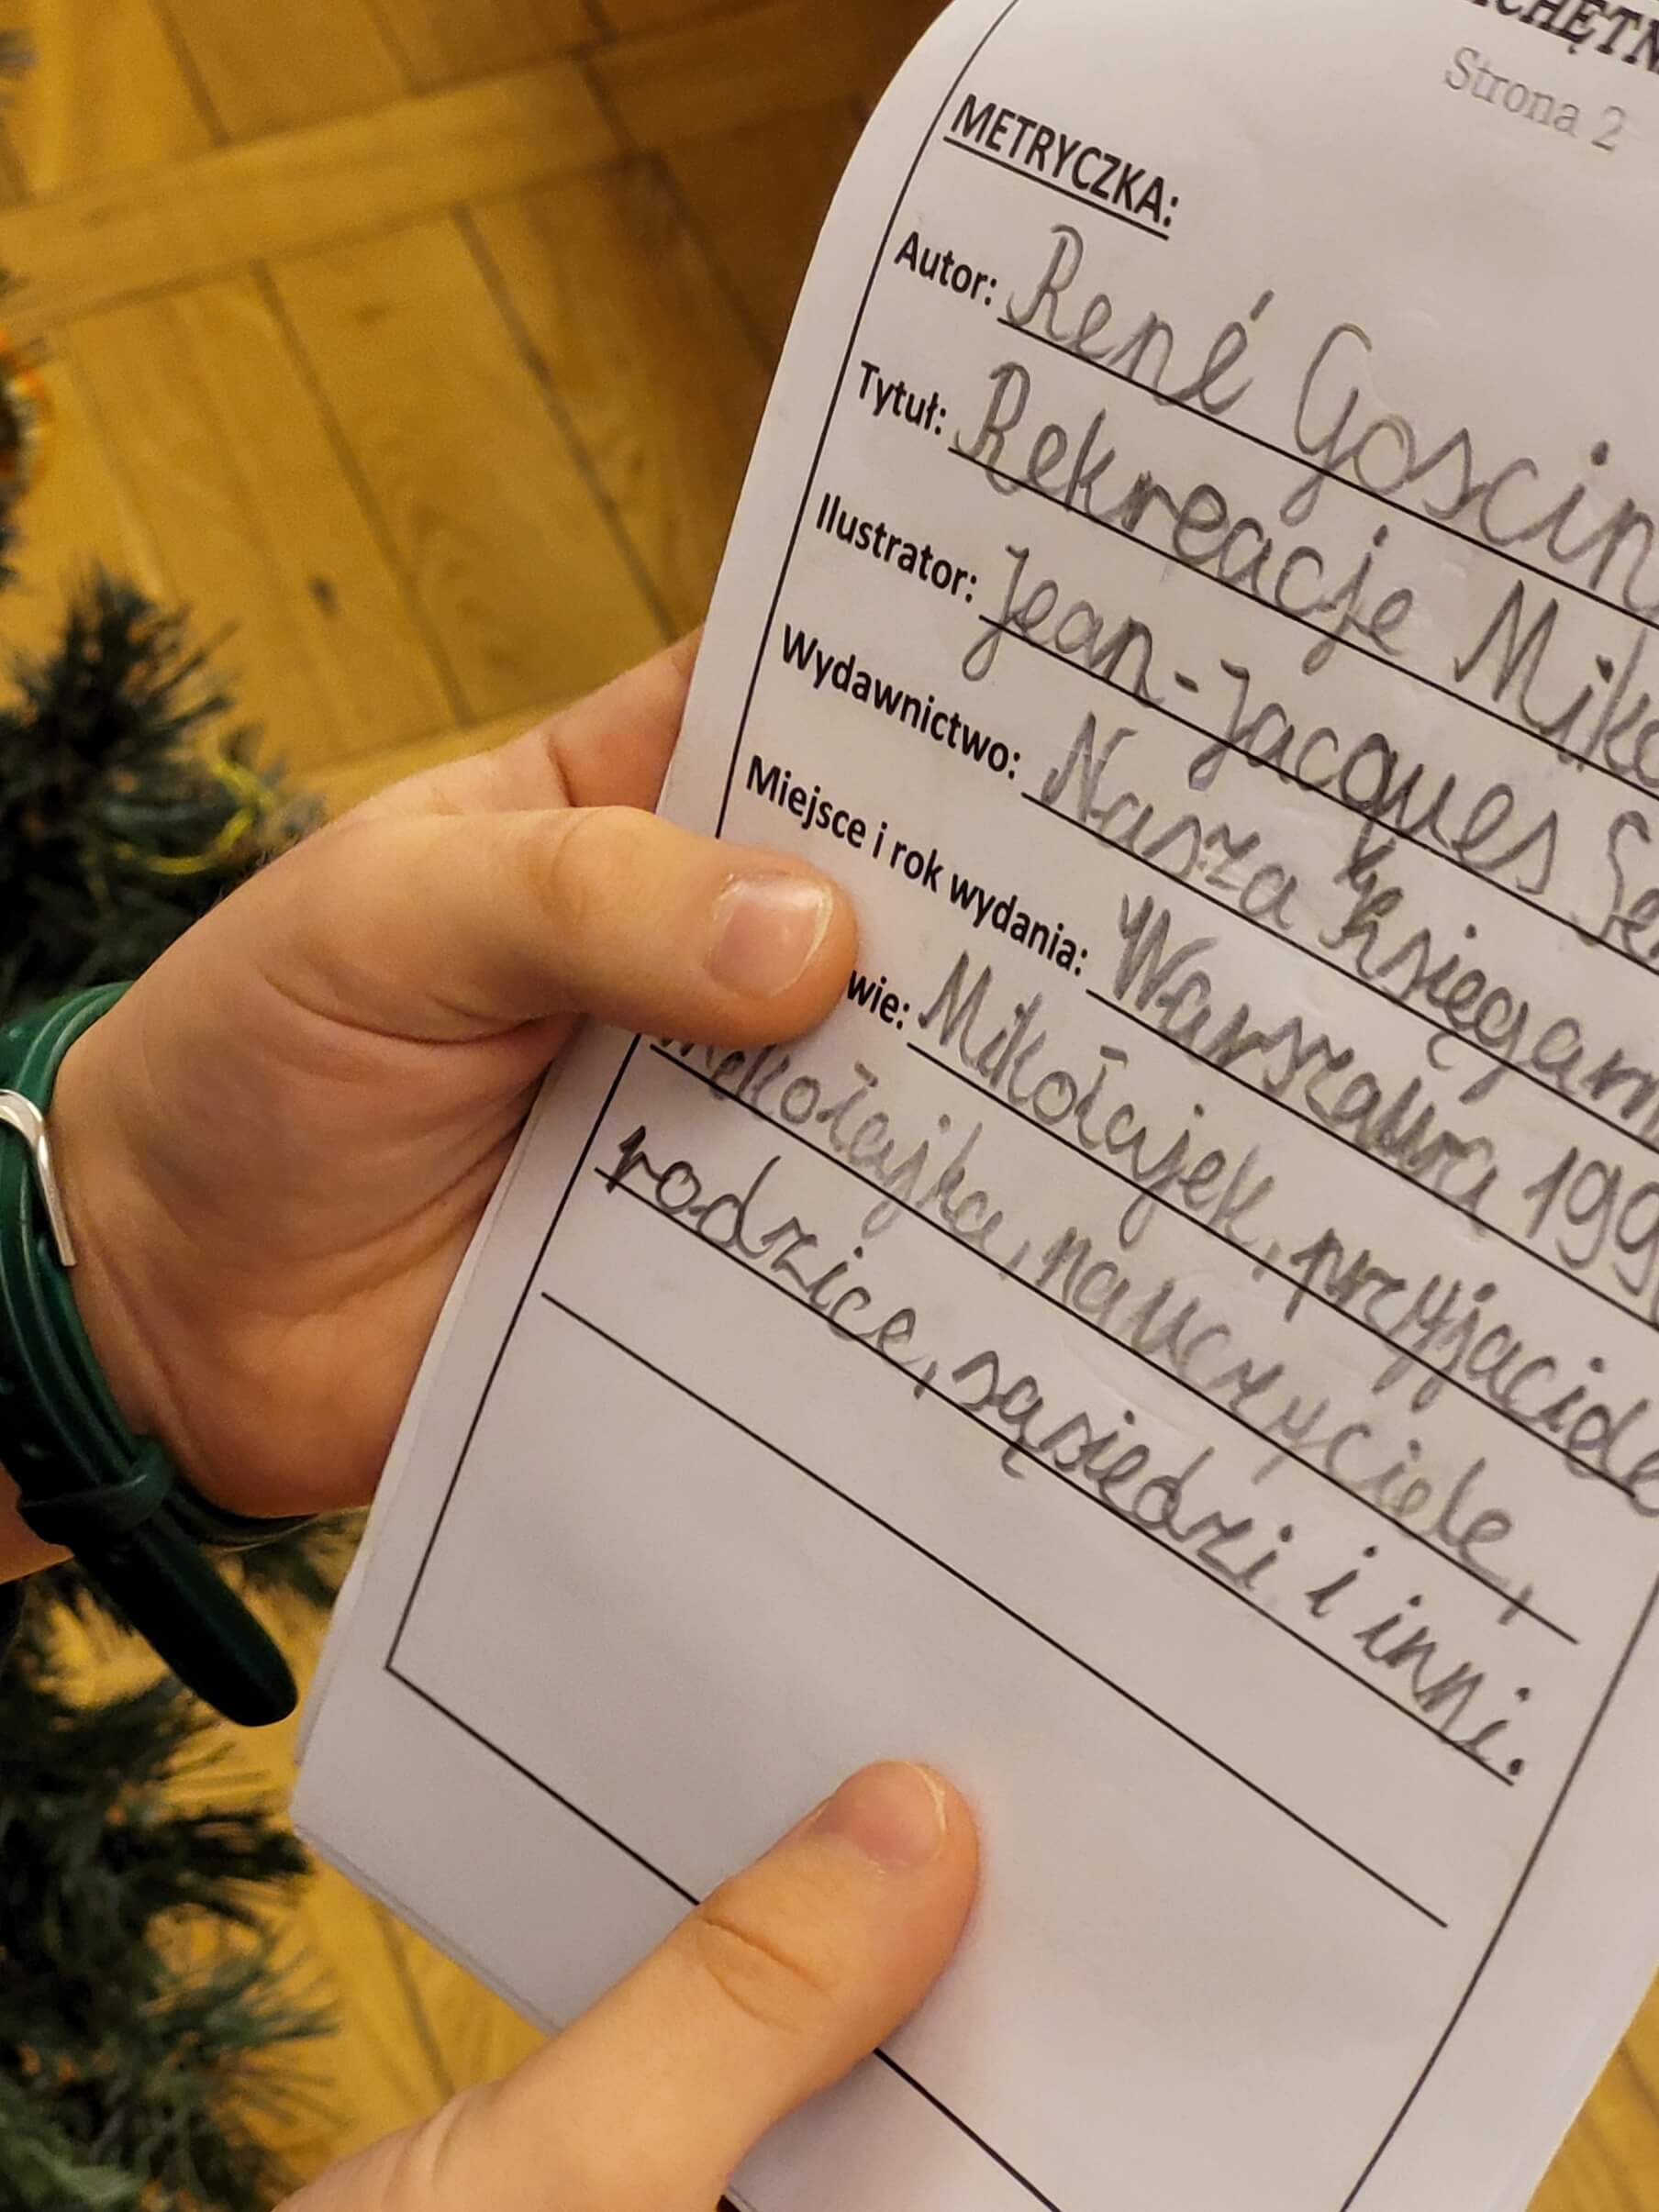 Strona 2
METRYCZKA:
Autor: René
Tytuł: Rekreacje
Ilustrator: Jean-Jacques
Wydawnictwo: Nasza
Miejsce i rok wydania: Warszawa
Mikołajek, przyjaciele
Mikołajka, nauczyciele,
rodzice, sąsiedzi i inni.